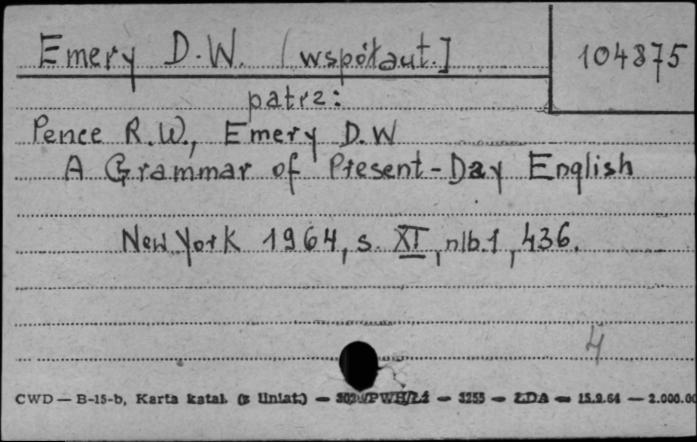 Emery D.W. [współaut.]
104875
patrz:
Pence R.W., Emery D.W
A Grammar of Present-Day English
New York 1964, s. XI, nlb.1, 436.
4
CWD — B-15-b, Karta katal. (z liniat.) — PWH/Łź — 3255 — ŁDA — 15.2.64 — 2.000.00